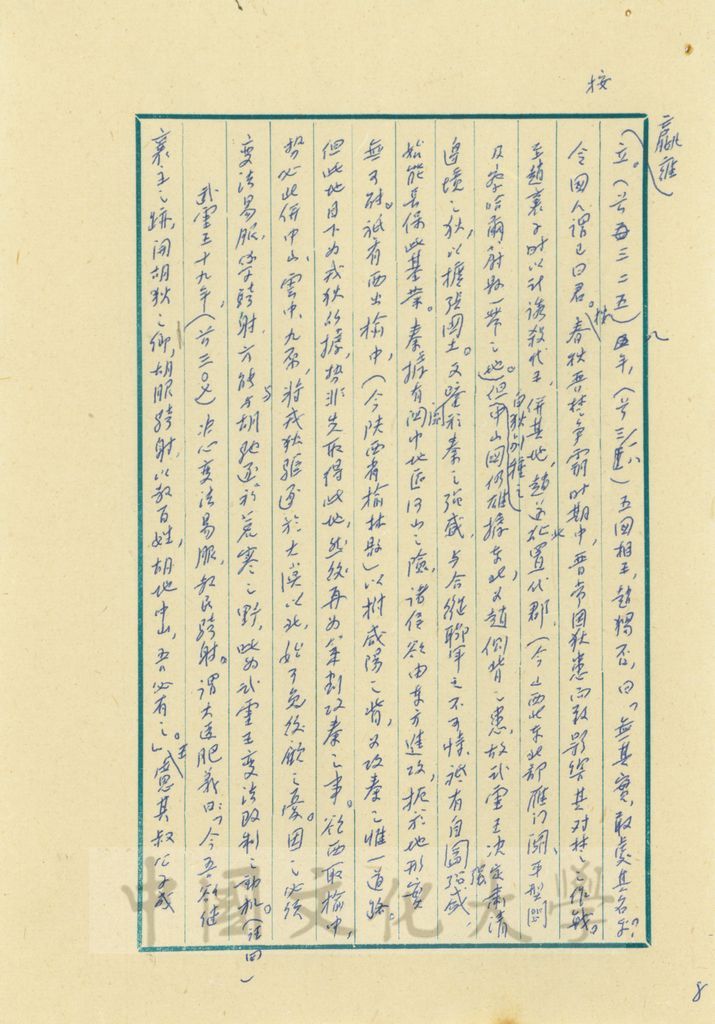 按
嬴雍
立。(公元前三二五)五年,(公三一八)五國相王,趙獨否,曰:「無其實,敢處其名乎?」
令國人謂己曰君。春秋晉楚爭霸時期中,晉常因狄患而致影響其對楚之作戰。
至趙襄子時以計誘殺代王,併其地,趙遂於此置代郡,(今山西北東北部雁門關、平型關
及察哈爾蔚縣一帶之地)但中山國(白狄別種)仍雄據東北,又趙側背之患,故武靈王決定肅清
邊境之狄,以擴張國土。又鑒於秦之強盛,與合縱聯軍之不可恃,祇有自圖強盛,
始能長保此基業。秦據有關中地區河山之險,諸侯欲由東方進攻,扼於地形實
無可施。祇有西出榆中,(今陝西省榆林縣)以拊咸陽之背,為攻秦之惟一道路。
但此地目下為戎狄所據,勢非先取得此地,然後再為策劃攻秦之事。欲西取榆中,
勢必北併中山、雲中、九原,將戎狄驅逐於大漠以北,始可免後顧之憂。因之必須
變法易服,學騎射,方能與胡馳逐於荒寒之野,此為武靈王變法改制之動機。(註四)
武靈王十九年,(公三〇七)決心變法易服,教民騎射。謂大臣肥義曰:「今吾欲繼
襄王之跡,開胡狄之鄉,胡服騎射,以教百姓,胡地中山,吾必有之。」王慮其叔公子成
8
中國文化大學